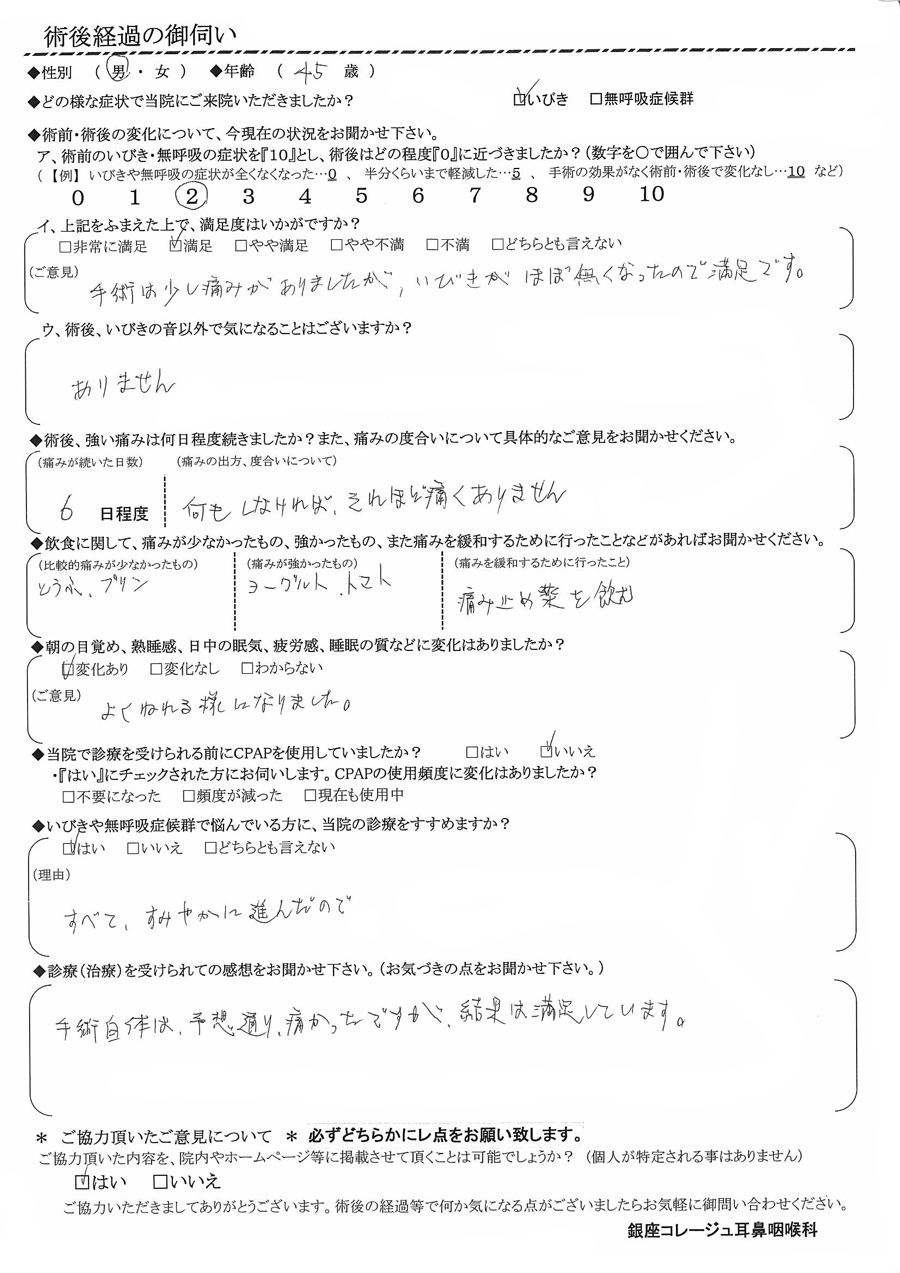 術後経過の御伺い
◆性別 (男・女) ◆年齢 (45 歳)
◆どの様な症状で当院にご来院いただきましたか? ☑いびき □無呼吸症候群
◆術前・術後の変化について、今現在の状況をお聞かせ下さい。
ア、術前のいびき・無呼吸の症状を『10』とし、術後はどの程度『0』に近づきましたか?(数字を〇で囲んで下さい)
(【例】いびきや無呼吸の症状が全くなくなった…0 、 半分くらいまで軽減した…5 、 手術の効果がなく術前・術後で変化なし…10 など)
0 1 2 3 4 5 6 7 8 9 10
イ、上記をふまえた上で、満足度はいかがですか?
□非常に満足 ☑満足 □やや満足 □やや不満 □不満 □どちらとも言えない
(ご意見)
手術は少し痛みがありましたが、いびきがほぼ無くなったので満足です。
ウ、術後、いびきの音以外で気になることはございますか?
ありません
◆術後、強い痛みは何日程度続きましたか?また、痛みの度合いについて具体的なご意見をお聞かせください。
(痛みが続いた日数) (痛みの出方、度合いについて)
6 日程度 何もしなければ、それほど痛くありません
◆飲食に関して、痛みが少なかったもの、強かったもの、また痛みを緩和するために行ったことなどがあればお聞かせください。
(比較的痛みが少なかったもの) (痛みが強かったもの) (痛みを緩和するために行ったこと)
とうふ、プリン ヨーグルト、トマト 痛み止め薬を飲む
◆朝の目覚め、熟睡感、日中の眠気、疲労感、睡眠の質などに変化はありましたか?
☑変化あり □変化なし □わからない
(ご意見)
よくねれる様になりました。
◆当院で診療を受けられる前にCPAPを使用していましたか? □はい ☑いいえ
・『はい』にチェックされた方にお伺いします。CPAPの使用頻度に変化はありましたか?
□不要になった □頻度が減った □現在も使用中
◆いびきや無呼吸症候群で悩んでいる方に、当院の診療をすすめますか?
☑はい □いいえ □どちらとも言えない
(理由)
すべて、すみやかに進んだので
◆診療(治療)を受けられての感想をお聞かせ下さい。(お気づきの点をお聞かせ下さい。)
手術自体は、予想通り、痛かったですが、結果は満足しています。
* ご協力頂いたご意見について * 必ずどちらかにレ点をお願い致します。
ご協力頂いた内容を、院内やホームページ等に掲載させて頂くことは可能でしょうか? (個人が特定される事はありません)
☑はい □いいえ
ご協力いただきましてありがとうございます。術後の経過等で何か気になる点がございましたらお気軽に御問い合わせください。
銀座コレージュ耳鼻咽喉科